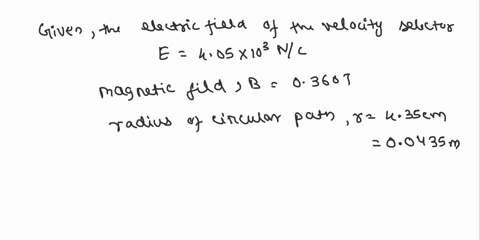 Given, the electric field of the velocity selector
E = 4.05 × 10³ N/C
magnetic fild, B = 0.360T
radius of circular path, r = 4.35cm
= 0.0435m